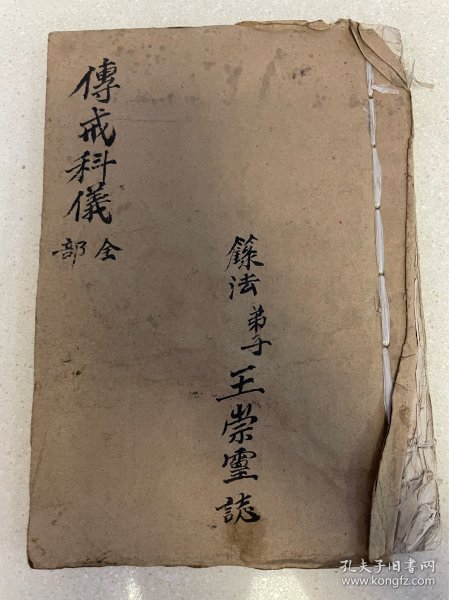 傳戒科儀
全部
籙法弟子王崇霊誌
孔夫子旧书网
www.kongfz.com